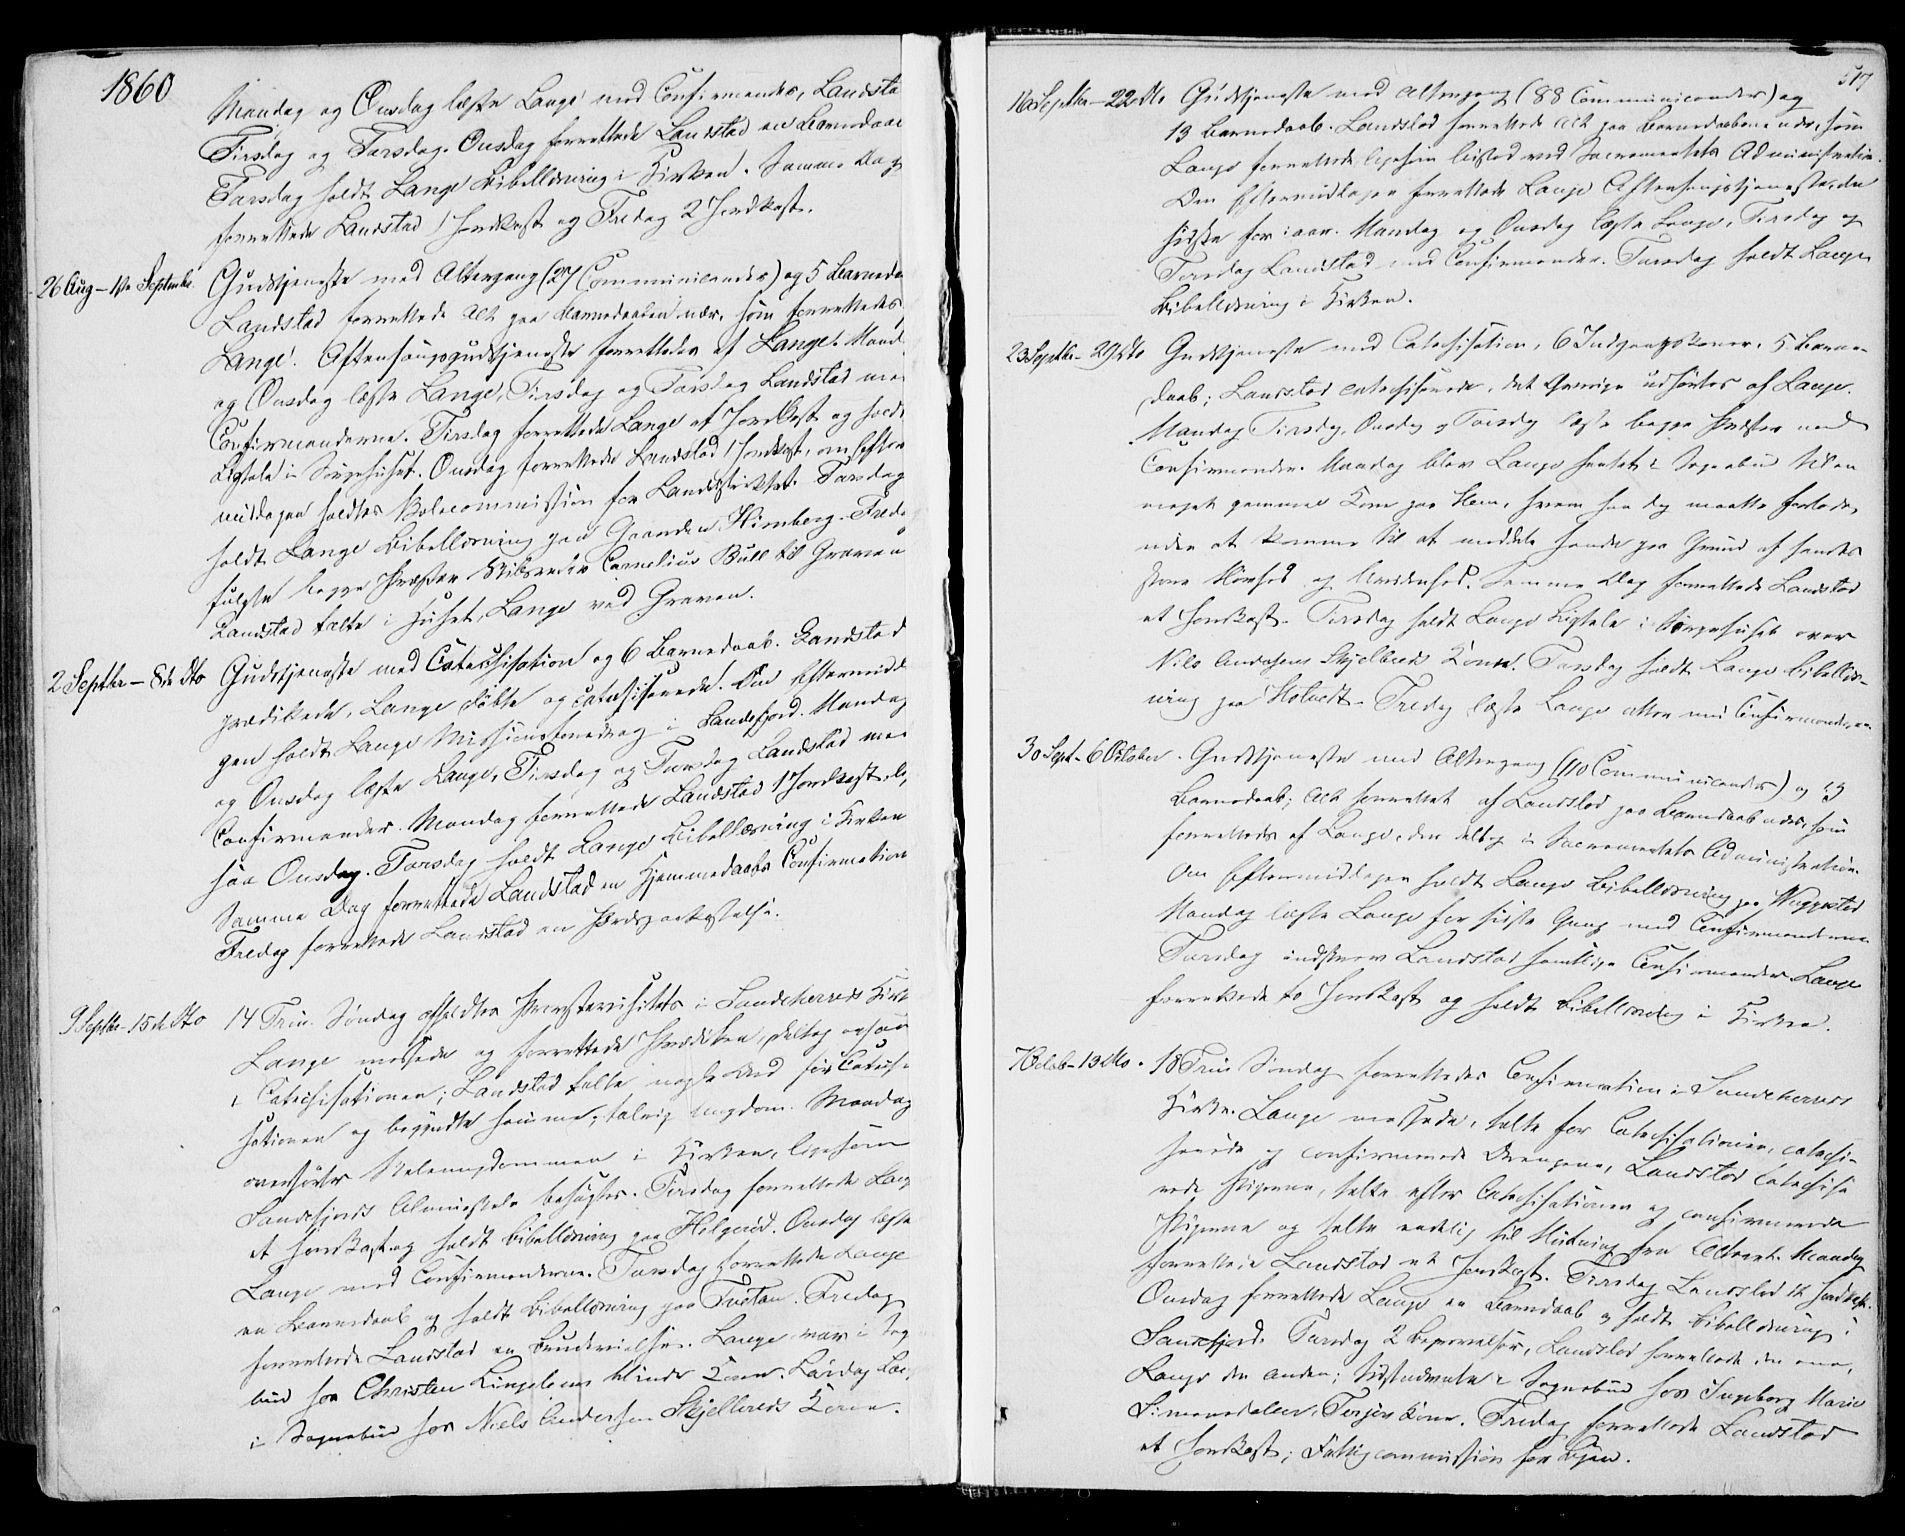 1860
Mandag og Onsdag læste Lange med Confirmander, Landsta
Tirsdag og Torsdag. Onsdag forrettede Landstad en Barnedaab
Torsdag holdt Lange Bibellæsning i Kirken. Samme Dag
forrettede Landstad 1 Jordkast og Fredag 2 Jordkast.
26 Aug – 1ste September. Gudstjeneste med Altergang (27 Communicander) og 5 Barneda
Landstad forrettede Alt paa Barnedaaben nær, som forrettedes
Lange. Aftensangsgudstjeneste forrettedes af Lange. Mand
og Onsdag læste Lange, Tirsdag og Torsdag Landstad me
Confirmanderne. Tirsdag forrettede Lange et Jordkast og holdt
Ligtale i Sørgehuset. Onsdag forrettede Landstad 1 Jordkast, om Efter
middagen holdtes Skolecommission for Landdistriktet. Torsdag
holdt Lange Bibellæsning paa Gaarden Himberg. Freda
fulgte begge Præster Skibsreder Cornelius Bull til Graven
Landstad talte i Huset, Lange ved Graven.
2 Septbr – 8de Dto Gudstjeneste med Catechisation og 6 Barnedaab. Landstad
prædikede, Lange døbte og catechiserede. Om Eftermidd
gen holdt Lange Missionsforedrag i Sandefjord. Mandag
og Onsdag læste Lange, Tirsdag og Torsdag Landstad me
Confirmander. Mandag forrettede Landstad 1 Jordkast, li
saa Onsdag. Torsdag holdt Lange Bibellæsning i Kirken
Samme Dag forrettede Landstad en Hjemmedaabs Confirmation
Fredag forrettede Landstad en Jordpaakastelse.
9 Septbr – 15de Dto 14 Trin. Søndag afholdtes Provstevisitats i Sandeherreds Kirk
Lange messede og forrettede Prædiken, deltog ogsaa
i Catechisationen; Landstad talte nogle Ord før Catechi
sationen og begyndte samme; talrig Ungdom. Mandag
overhørtes Skoleungdommen i Kirken, ligesom
Sandefjords Almueskole besøgtes. Tirsdag forrettede Lang
et Jordkast og holdt Bibellæsning paa Helgerød. Onsdag læste
Lange med Confirmanderne. Torsdag forrettede Lange
en Barnedaab og holdt Bibellæsning paa Tveten. Fredag
forrettede Landstad en Brudevielse. Lange var i Sog
bud hos Christen Lingelems blinde Kone. Lørdag Lan
i Sognebud hos Niels Andersen Skjelbreds Kone.
517
16 Septbr – 22 Dto Gudstjeneste med Altergang (88 Communicander) og
13 Barnedaab. Landstad forrettede Alt paa Barnedaabene nær, som
Lange forrettede ligesom bistod ved Sacramentets Administration.
Om Eftermiddagen forrettede Lange Aftensangstjeneste, den
sidste for iaar. Mandag og Onsdag læste Lange, Tirsdag og
Torsdag Landstad med Confirmander. Torsdag holdt Lange
Bibellæsning i Kirken.
23 Septbr – 29 Dto Gudstjeneste med Catechisation, 6 Indgangskoner, 5 Barne-
daab; Landstad catechiserede, det Øvrige udførtes af Lange.
Mandag Tirsdag, Onsdag og Torsdag læste begge Præster med
Confirmander. Mandag blev Lange hentet i Sognebud til en
meget gammel Kone paa Hem, hvem han dog maatte forlade,
uden at komme til at meddele hende paa Grund af hendes
store Sløvhed og Ureenhed. Samme Dag forrettede Landstad
et Jordkast. Tirsdag holdt Lange Ligtale i Sørgehuset over
Nils Andersens Skjelbreds Kone. Torsdag holdt Lange Bibellæs-
ning paa Holtedt. Fredag læste Lange atter med Confirmanderne.
30 Sept – 6 October. Gudstjeneste med Altergang (110 Communicander) og 13
Barnedaab; Alt forrettet af Landstad paa Barnedaab nær, som
forrettedes af Lange, der deltog i Sacramentets Administration.
Om Eftermiddagen holdt Lange Bibellæsning paa Wæggestad
Mandag læste Lange for sidste Gang med Confirmanderne.
Torsdag indskrev Landstad samtlige Confirmander. Lange
forrettede to Jordkast og holdt Bibellæsning i Kirken.
7 Octob – 13 Dto. 18 Trin Søndag forrettedes Confirmation i Sandeherreds
Kirke. Lange messede, talte før Catechisationen, catechi-
serede og confirmerede Drengene, Landstad catechise
rede Pigerne, talte efter Catechisationen og confirmerede
Pigerne og talte endelig til Slutning fra Alteret. Mandag
forrettede Landstad et Jordkast. Tirsdag Landstad et Jordkast.
Onsdag forrettede Lange en Barnedaab og holdt Bibellæsning i
Sandefjord. Torsdag 2 Begravelser, Landstad forrettede den ene,
Lange den anden; Sidstnævnte i Sognebud hos Ingeborg Marie
Simonsdatter, Torjers Kone. Fredag forrettede Landstad
et Jordkast; Fattigcommission for Byen.